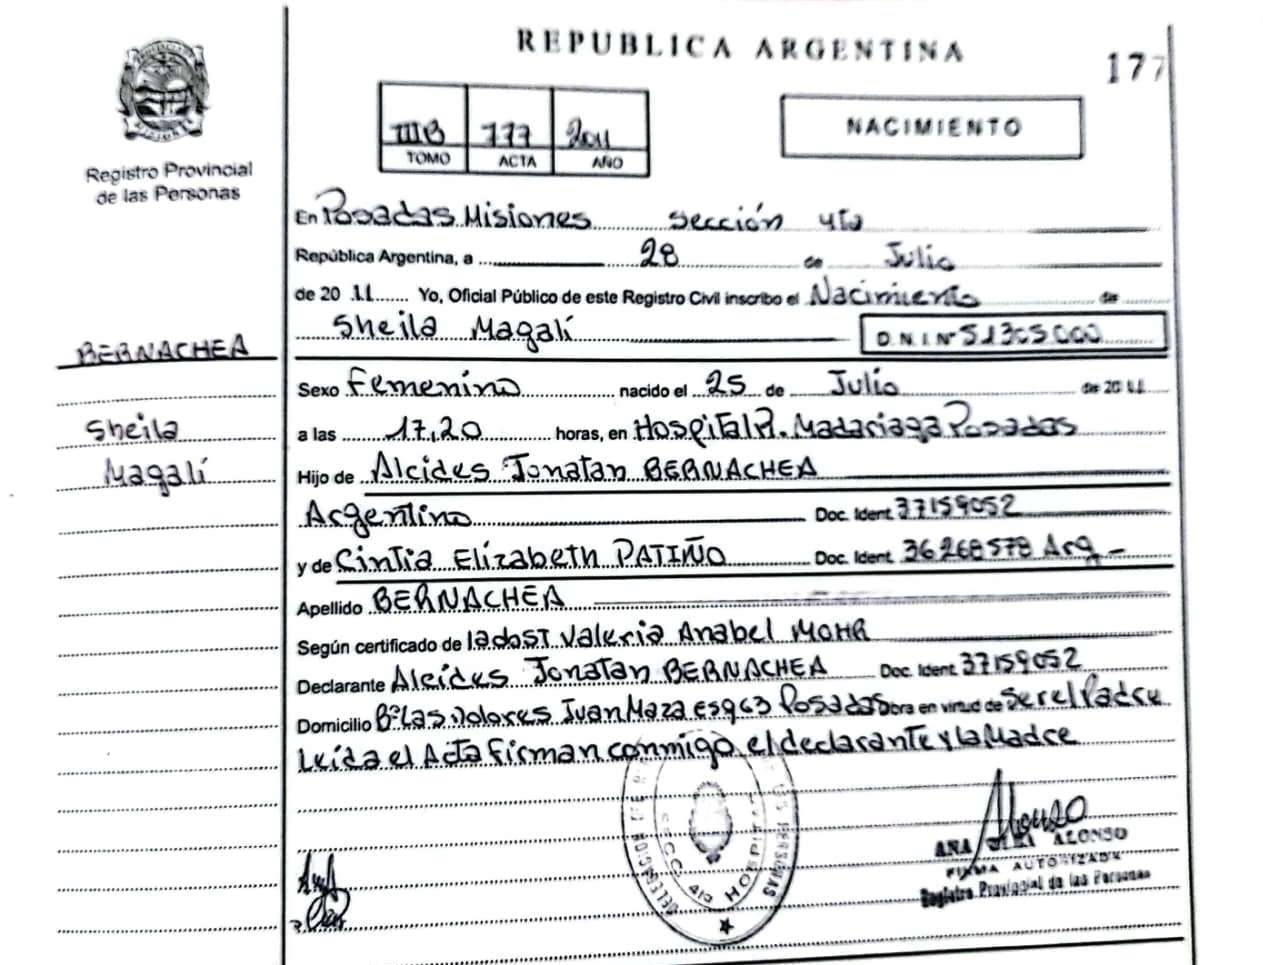 REPUBLICA ARGENTINA
177
IIIB 777 2011
TOMO ACTA AÑO
NACIMIENTO
Registro Provincial
de las Personas
En Posadas Misiones sección 4ta
República Argentina, a 28 de Julio
de 2011 Yo, Oficial Público de este Registro Civil inscribo el Nacimiento de
Sheila Magalí D.N.I. Nº 51305000
BERNACHEA
Sheila
Magalí
Sexo Femenino nacido el 25 de Julio de 2011
a las 17,20 horas, en Hospital R. Madariaga Posadas
Hijo de Alcides Jonatan BERNACHEA
Argentino Doc. Ident. 37159052
y de Cintia Elizabeth PATIÑO Doc. Ident. 36268578 Arg -
Apellido BERNACHEA
Según certificado de la dost Valeria Anabel MOHR
Declarante Alcides Jonatan BERNACHEA Doc. Ident. 37159052
Domicilio Bº Las Dolores Juan Maza esq 63 Posadas obra en virtud de ser el Padre
Leída el Acta firman conmigo, el declarante y la Madre
SECC. 4ta HOSPITAL
DE LAS PERSONAS
Alonso
ANA ALONSO
FIRMA AUTORIZADA
Registro Provincial de las Personas